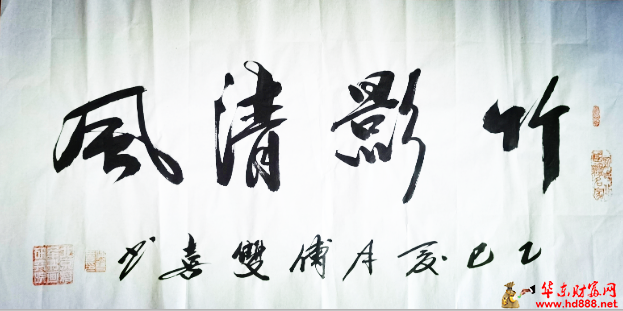 竹影清風
乙巳夏月傅雙喜书
华东财富网
www.hd888.net